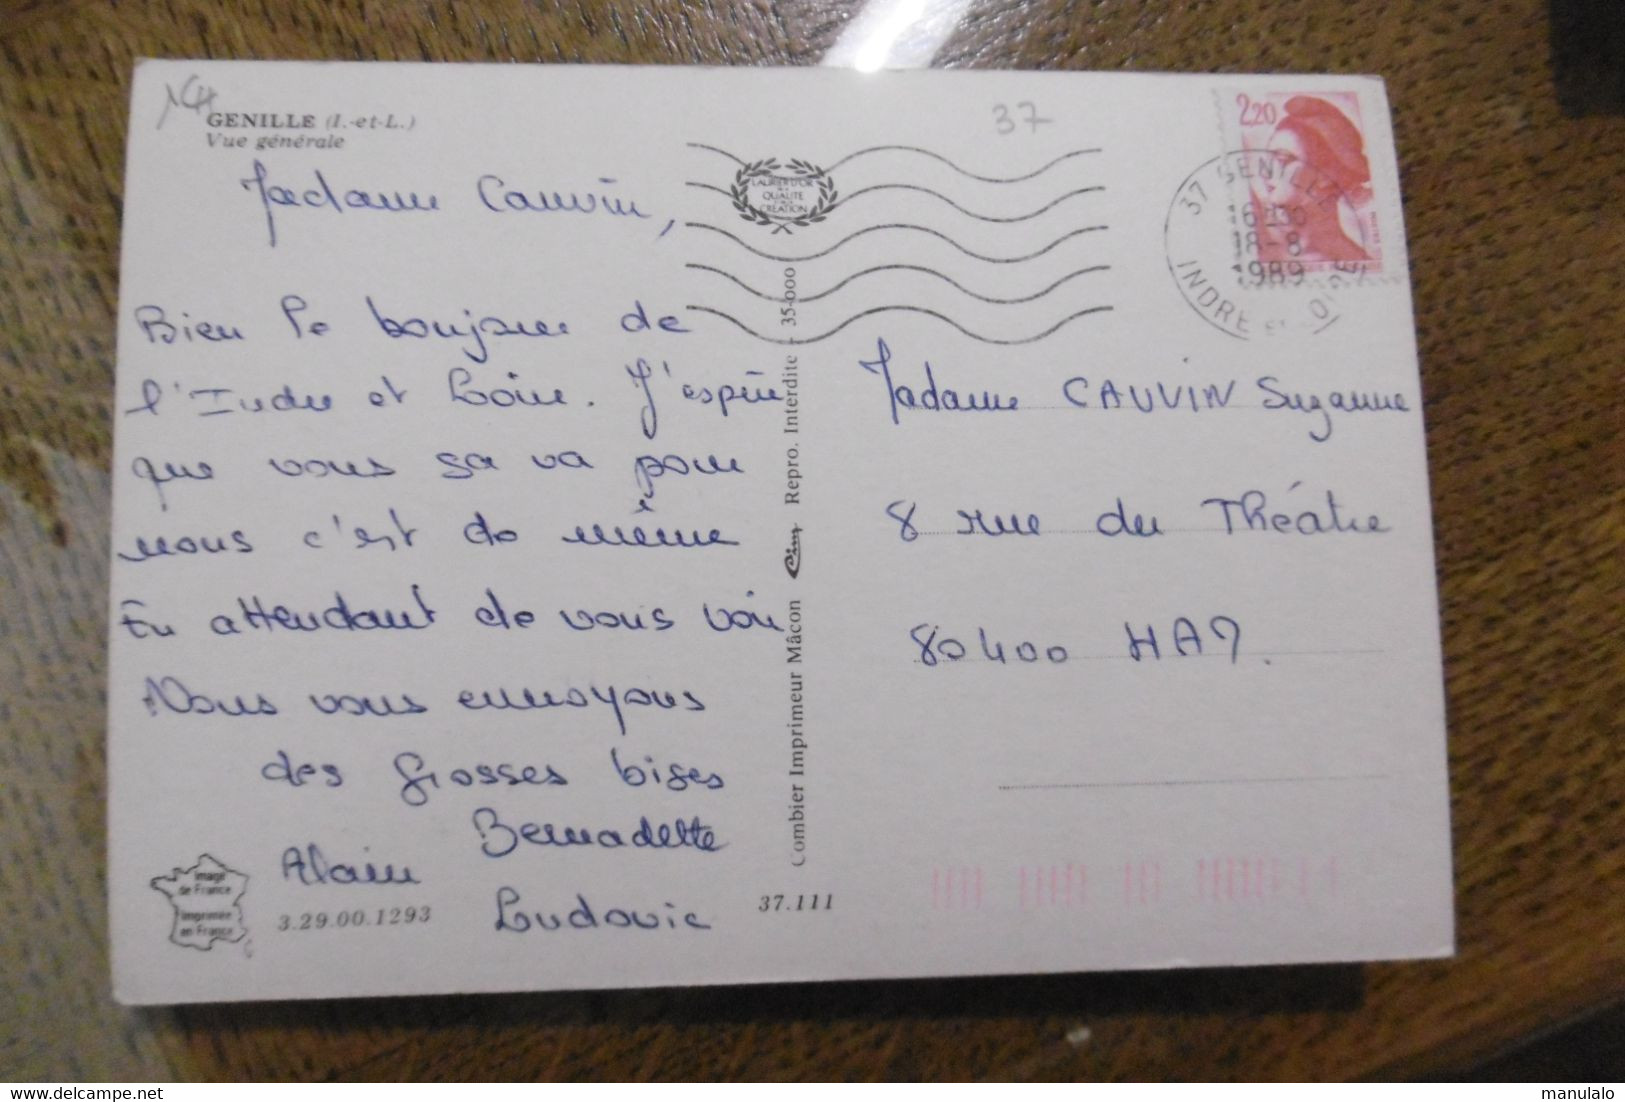 GENILLE (I.-et-L.)
Vue générale
37
Madame Cauvin,
Bien le bonjour de
l'Indre et Loire. J'espère
que vous sa va pour
nous c'est de même
En attendant de vous voir
Nous vous ennvoyons
des grosses bises
Bernadette
Alain
Ludovic
Image
de France
imprimée
en France
3.29.00.1293
37.111
LAURIER D'OR
DE LA
QUALITE
CREATION
Combier Imprimeur Mâcon Cim Repro. Interdite - 35-000
2,20
37 GENILLE
16H30
18-8
1989
INDRE ET LOIRE
Madame CAUVIN Suzanne
8 rue du Théâtre
80400 HAM.
manulalo